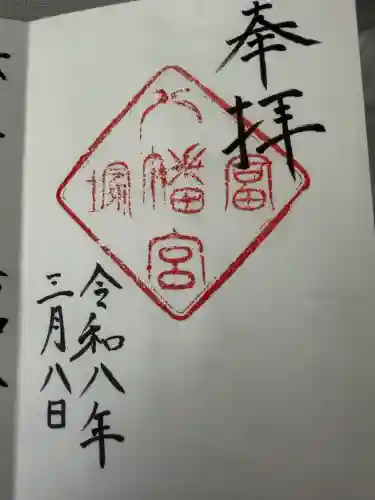 奉拝
富
八幡宮
堀
令和八年
三月八日